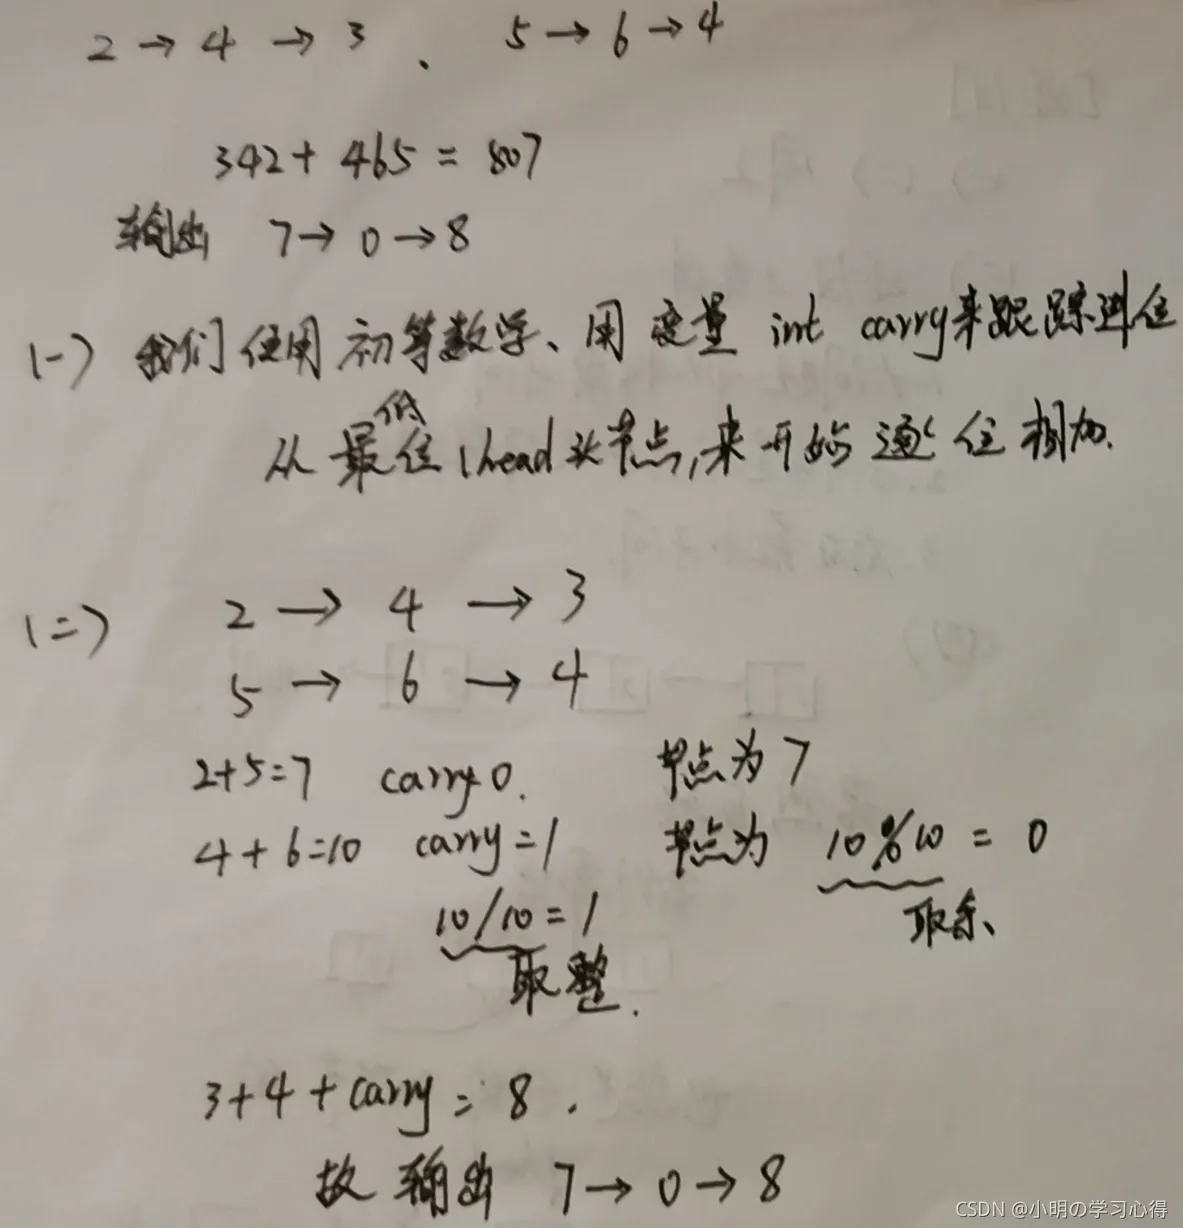 2 → 4 → 3 、 5 → 6 → 4
342 + 465 = 807
输出 7 → 0 → 8
(一) 我们使用初等数学、用变量 int carry来跟踪进位
从最低位(head头节点,来开始逐位相加.
(二) 2 → 4 → 3
5 → 6 → 4
2+5=7 carry 0. 节点为 7
4+6=10 carry=1 节点为 10%10 = 0
10/10=1 取余、
取整.
3+4+carry = 8 .
故输出 7 → 0 → 8
CSDN @小明の学习心得